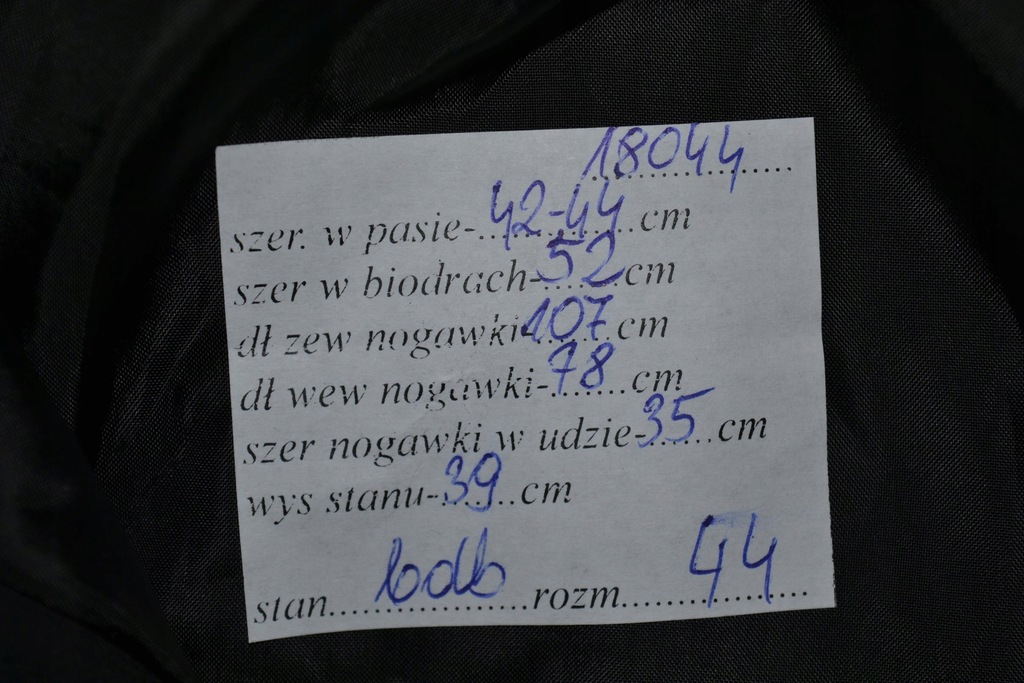 18044
szer. w pasie-42-44cm
szer w biodrach-52cm
dł zew nogawki-107cm
dł wew nogawki-78cm
szer nogawki w udzie-35cm
wys stanu-39cm
stan bdb rozm 44